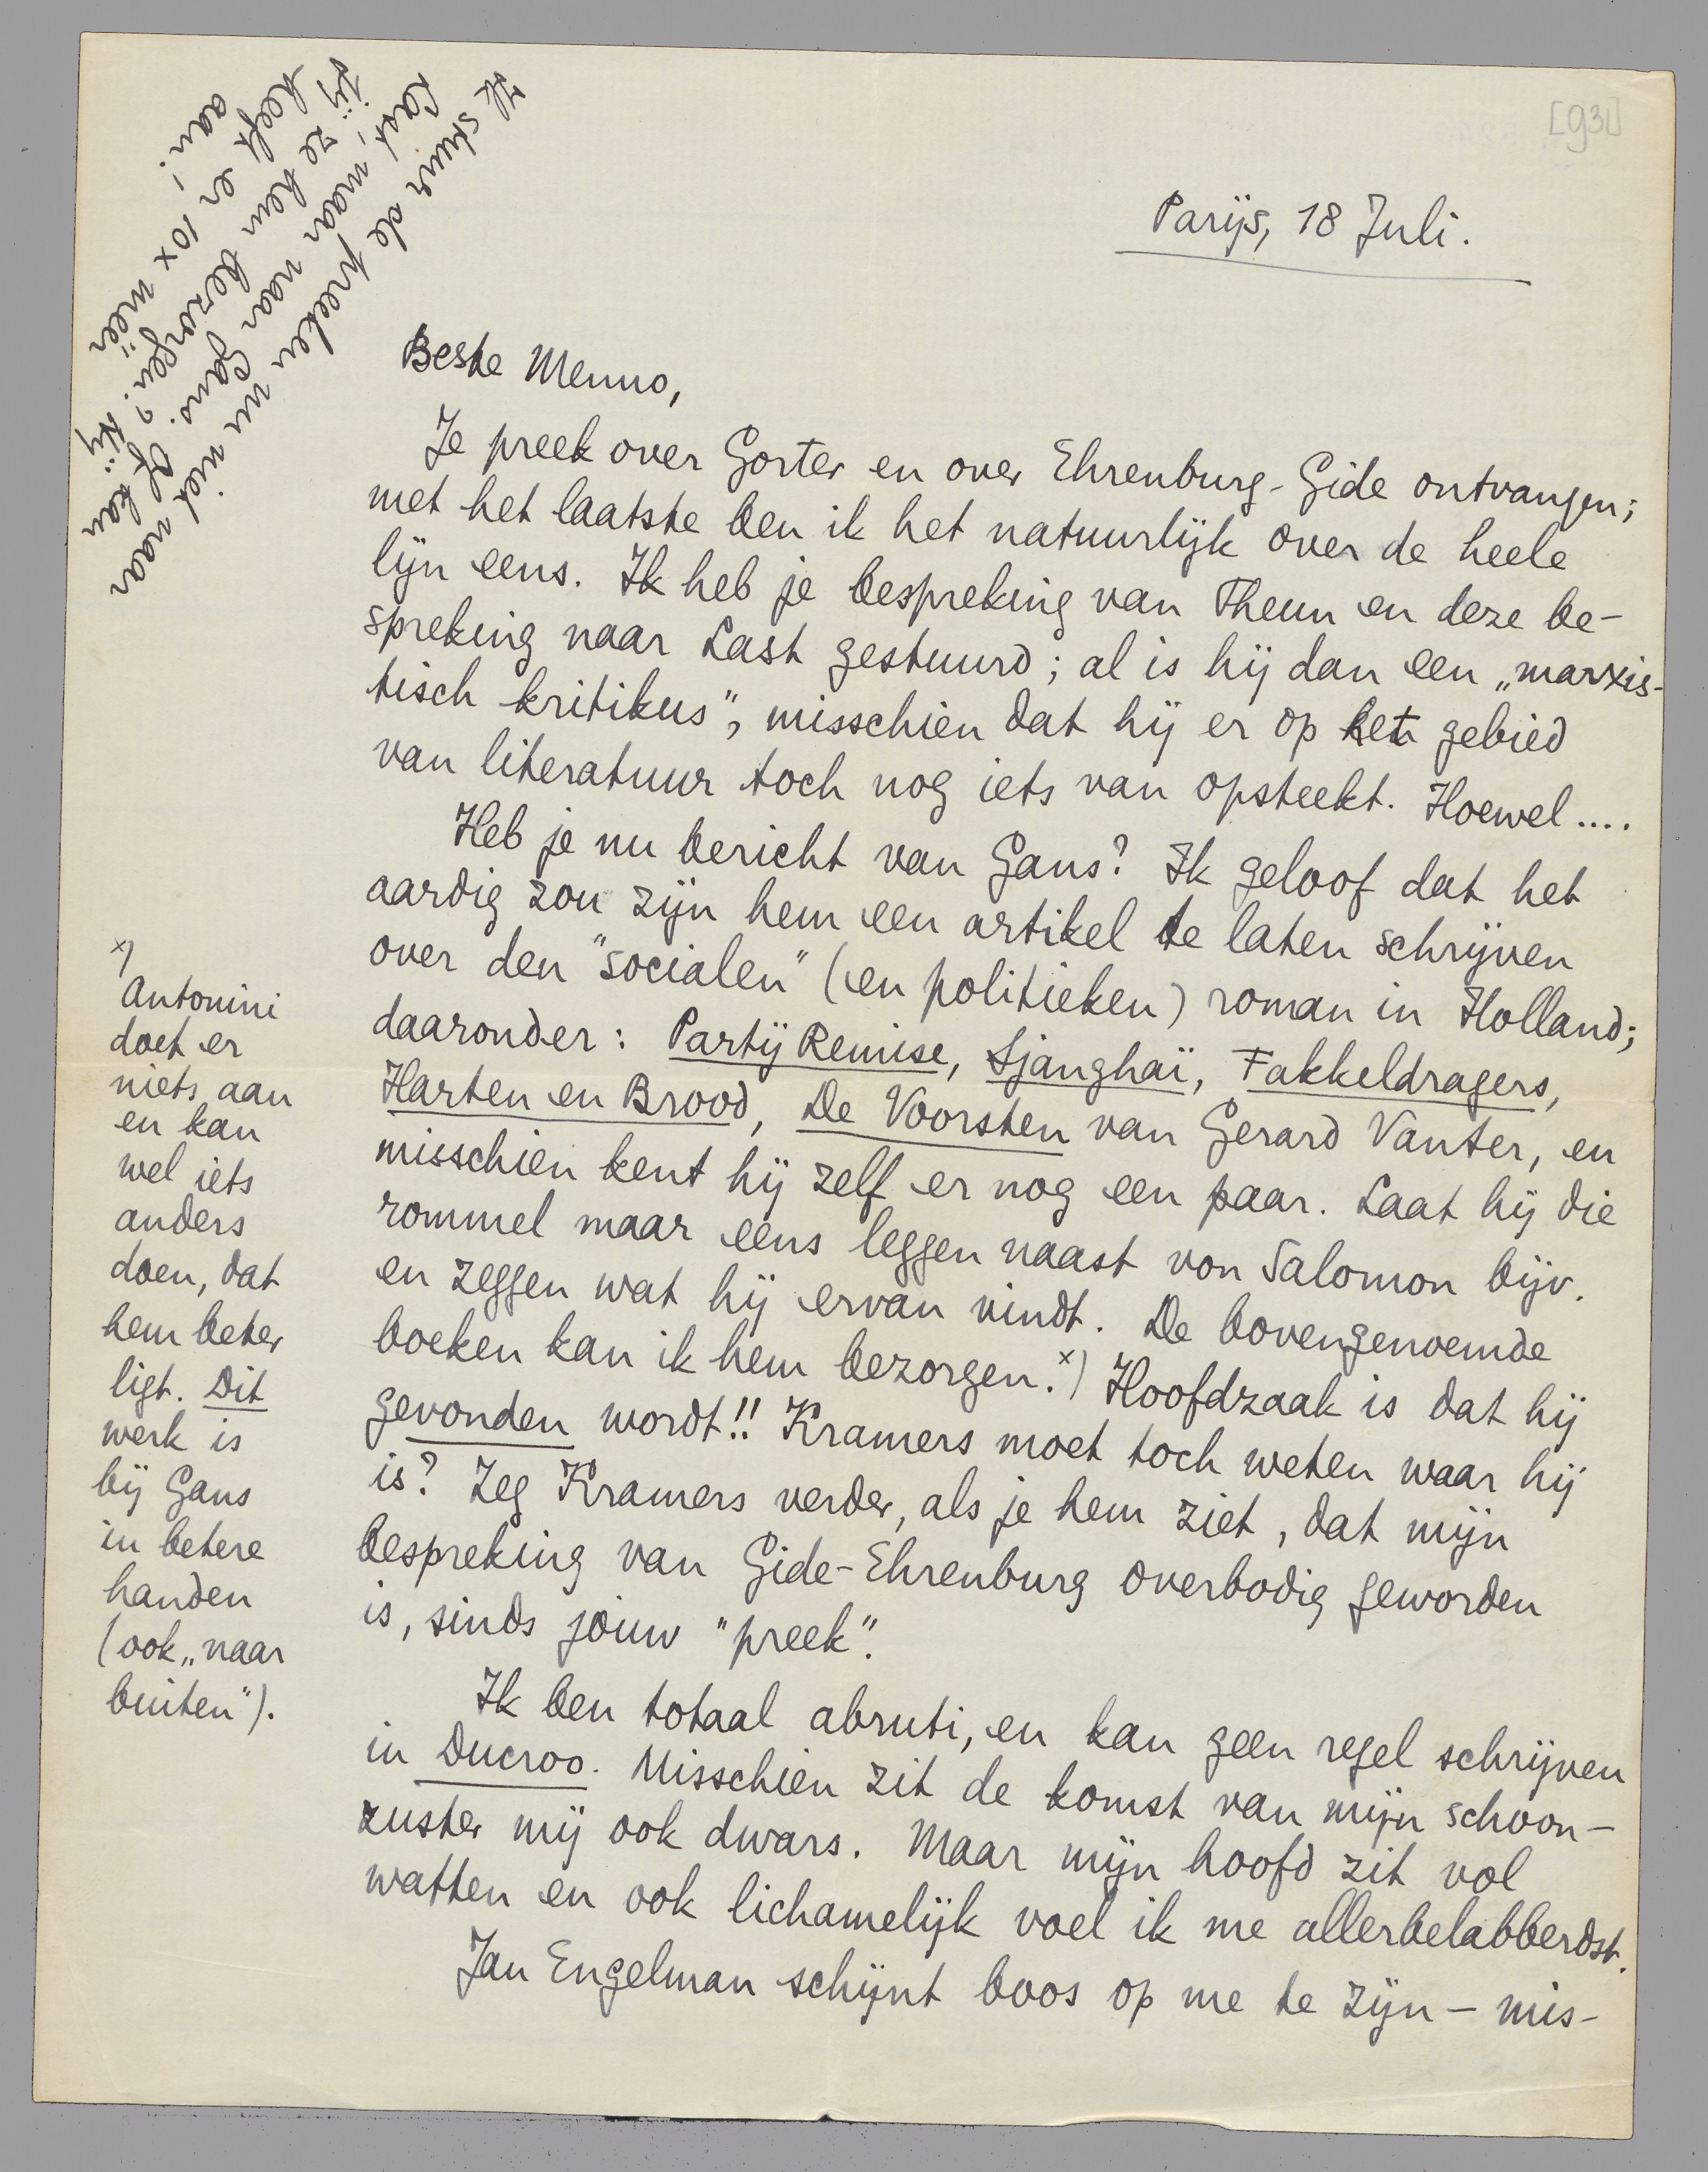 [931]
Parijs, 18 Juli.
Ik stuur de preeken nu niet naar
Last, maar naar Gans. Of kan
jij ze hem bezorgen? Hij
heeft er 10x méér
aan! -
Beste Menno,
Je preek over Gorter en over Ehrenburg-Gide ontvangen;
met het laatste ben ik het natuurlijk over de heele
lijn eens. Ik heb je bespreking van Theun en deze be-
spreking naar Last gestuurd; al is hij dan een „marxis-
tisch kritikus", misschien dat hij er op het gebied
van literatuur toch nog iets van opsteekt. Hoewel....
Heb je nu bericht van Gans? Ik geloof dat het
aardig zou zijn hem een artikel te laten schrijven
over den "socialen" (en politieken) roman in Holland;
daaronder: Partij Remise, Sjanghaï, Fakkeldragers,
Harten en Brood, De Voorsten van Gerard Vanter, en
misschien kent hij zelf er nog een paar. Laat hij die
rommel maar eens leggen naast von Salomon bijv.
en zeggen wat hij ervan vindt. De bovengenoemde
boeken kan ik hem bezorgen.x) Hoofdzaak is dat hij
gevonden wordt!! Kramers moet toch weten waar hij
is? Zeg Kramers verder, als je hem ziet, dat mijn
bespreking van Gide-Ehrenburg overbodig geworden
is, sinds jouw "preek".
Ik ben totaal abruti, en kan geen regel schrijven
in Ducroo. Misschien zit de komst van mijn schoon-
zuster mij ook dwars. Maar mijn hoofd zit vol
watten en ook lichamelijk voel ik me allerbelabberdst.
Jan Engelman schijnt boos op me te zijn – mis-
x)
Antonini
doet er
niets aan
en kan
wel iets
anders
doen, dat
hem beter
ligt. Dit
werk is
bij Gans
in betere
handen
(ook „naar
buiten").